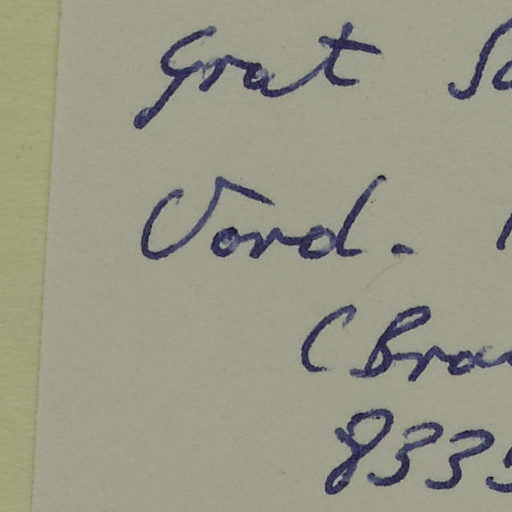 Grat
Vord.
(Bra
833